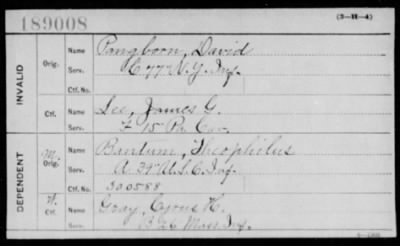 189008
(3-11-4)
INVALID
Orig.
Name Pangborn, David
Serv. C 77" N.Y. Inf.
Ctf. No.
Ctf.
Name Lee, James G.
Serv. F 15 Pa Cav.
DEPENDENT
M.
Orig.
Name Bantum, Theophilus
Serv. A 39" U.S.C. Inf.
Ctf. No. 300588
W.
Ctf.
Name Gray, Cyrus H.
Serv. B 26 Mass Inf.